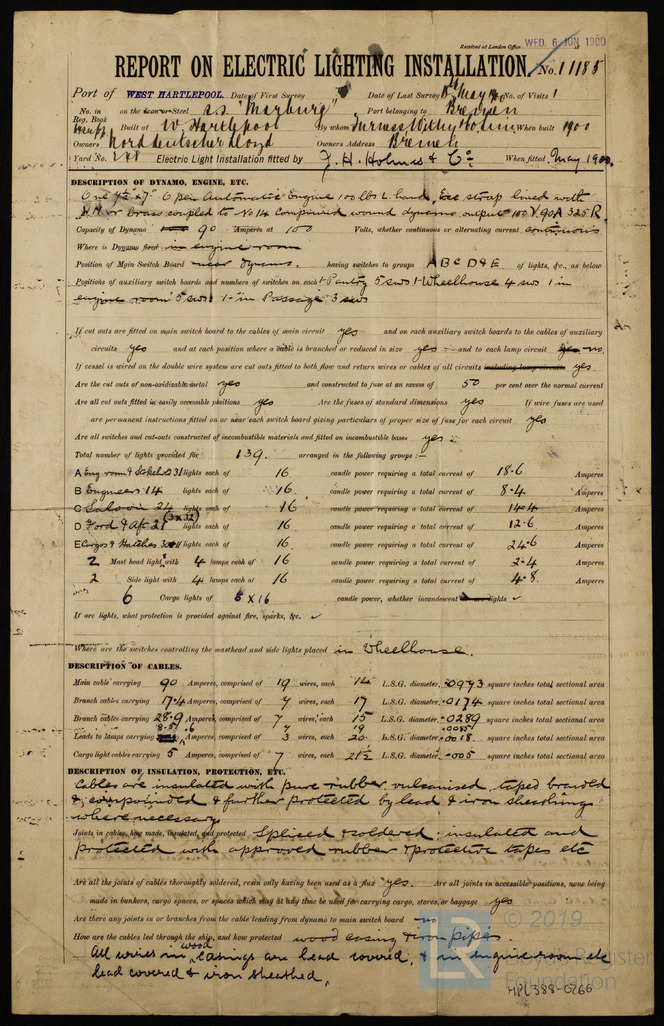 Received at London Office WED. 6 JUN 1900
REPORT ON ELECTRIC LIGHTING INSTALLATION. No. 11185
Port of WEST HARTLEPOOL. Date of First Survey Date of Last Survey May 1900 No. of Visits 1
No. in Reg. Book on the Iron or Steel s.s "Marburg" Part belonging to Bremen
Built at W. Hartlepool By whom Furness Withy & Co Lim When built 1900
Owners Norddeutscher Lloyd Owners Address Bremen
Yard No. 248 Electric Light Installation fitted by J. H. Holmes & Co. When fitted May 1900
DESCRIPTION OF DYNAMO, ENGINE, ETC.
One 7½ x 7" Open Automatic Engine 100 lbs L. hand, Exc strap lined with
W.M. or brass coupled to No 14 Compound wound dynamo output 100 V. 90 A 325 R.
Capacity of Dynamo 90 Amperes at 100 Volts, whether continuous or alternating current continuous
Where is Dynamo fixed in engine room
Position of Main Switch Board near dynamo. having switches to groups A B C D & E of lights, &c., as below
Positions of auxiliary switch boards and numbers of switches on each 1 Pantry 5 sws 1 Wheelhouse 4 sws 1 in
engine room 5 sws 1 in Passage 3 sws
If cut outs are fitted on main switch board to the cables of main circuit yes and on each auxiliary switch boards to the cables of auxiliary
circuits yes and at each position where a cable is branched or reduced in size yes and to each lamp circuit yes no.
If vessel is wired on the double wire system are cut outs fitted to both flow and return wires or cables of all circuits including lamp circuits yes
Are the cut outs of non-oxidizable metal yes and constructed to fuse at an excess of 50 per cent over the normal current
Are all cut outs fitted in easily accessible positions yes Are the fuses of standard dimensions yes If wire fuses are used
are permanent instructions fitted on or near each switch board giving particulars of proper size of fuse for each circuit yes
Are all switches and cut-outs constructed of incombustible materials and fitted on incombustible bases yes.
Total number of lights provided for 139. arranged in the following groups :—
A Eng. room & Stokehold 31 lights each of 16 candle power requiring a total current of 18.6 Amperes
B Engineers 14 lights each of 16. candle power requiring a total current of 8.4 Amperes
C Saloon 24 lights each of 16 candle power requiring a total current of 14.4 Amperes
D Ford & Aft 21 lights each of 16 candle power requiring a total current of 12.6 Amperes
(3 x 32)
E Cargo & Hatches lights each of 16 candle power requiring a total current of 24.6 Amperes
2 Mast head light with 4 lamps each of 16 candle power requiring a total current of 2.4 Amperes
2 Side light with 4 lamps each of 16 candle power requiring a total current of 4.8 Amperes
6 Cargo lights of 5 x 16 candle power, whether incandescent or arc lights ✓
If arc lights, what protection is provided against fire, sparks, &c. ✓
Where are the switches controlling the masthead and side lights placed in Wheelhouse.
DESCRIPTION OF CABLES.
Main cable carrying 90 Amperes, comprised of 19 wires, each 14 L.S.G. diameter, .0973 square inches total sectional area
Branch cables carrying 17.4 Amperes, comprised of 7 wires, each 17 L.S.G. diameter, .0174 square inches total sectional area
Branch cables carrying 28.9 Amperes, comprised of 7 wires, each 15 L.S.G. diameter, .0289 square inches total sectional area
Leads to lamps carrying .6 Amperes, comprised of 3 wires, each 20 L.S.G. diameter, .0018 square inches total sectional area
Cargo light cables carrying 5 Amperes, comprised of 7 wires, each 21½ L.S.G. diameter, .005 square inches total sectional area
DESCRIPTION OF INSULATION, PROTECTION, ETC.
Cables are insulated with pure rubber vulcanised, taped braided
& compounded & further protected by lead & iron sheathing
where necessary
Joints in cables, how made, insulated, and protected Spliced & soldered. insulated and
protected with approved rubber & protective tapes etc
Are all the joints of cables thoroughly soldered, resin only having been used as a flux yes. Are all joints in accessible positions, none being
made in bunkers, cargo spaces, or spaces which may at any time be used for carrying cargo, stores, or baggage yes
Are there any joints in or branches from the cable leading from dynamo to main switch board no
How are the cables led through the ship, and how protected wood casing & iron pipes.
All wires in wood casings are lead covered, & in engine room etc
lead covered & iron sheathed.
© 2019
Lloyd's Register
Foundation
LR
HPL388-0266